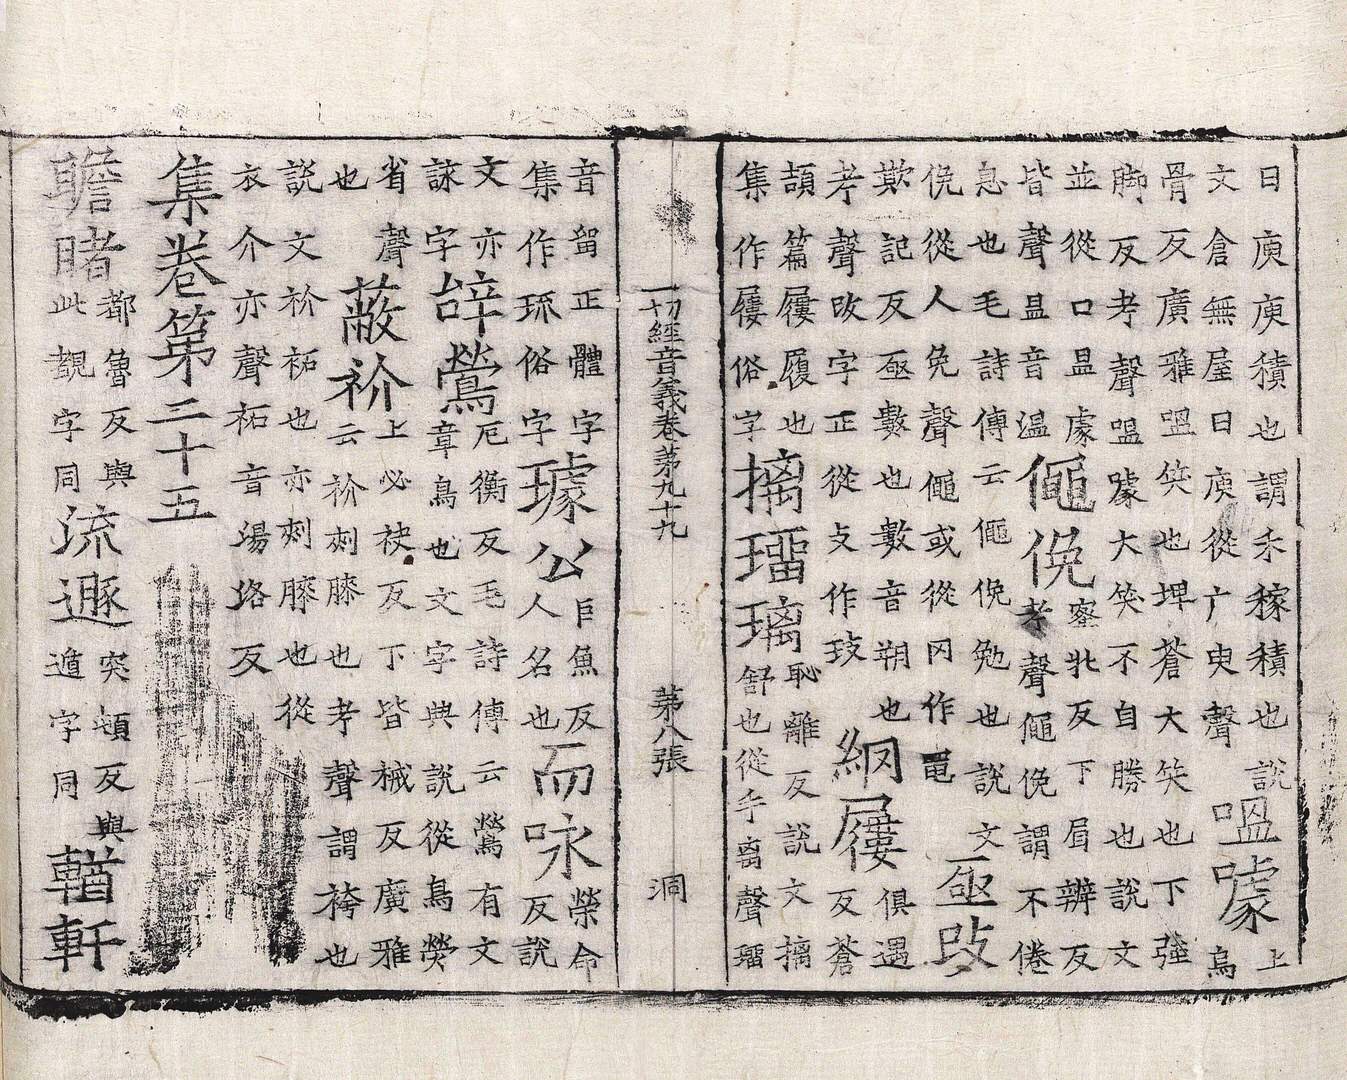 日庾庾積也謂禾稼積也說
文倉無屋日庾從广臾聲
嗢噱
上
烏
骨反廣雅嗢笑也埤蒼大笑也下強
脚反考聲嗢噱大笑不自勝也說文
並從口𥁕豦
皆聲𥁕音溫
僶俛
蜜牝反下眉辨反
考聲僶俛謂不倦
息也毛詩傳云僶俛勉也說文
俛從人免聲僶或從冈作黽
亟攺
欺記反亟數也數音朔也
考聲改字正從攴作攺
網屨
俱遇
反蒼
頡篇屨履也
集作屨俗字
摛瑠璃
恥離反說文摛
舒也從手离聲瑠
一切經音義卷第九十九 第八張 洞
音留正體字
集作琉俗字
璩公
巨魚反
人名也
而咏
榮命
反說
文亦
詠字
辝鶯
厄衡反毛詩傳云鶯有文
章鳥也文字典說從鳥熒
省聲
也
蔽衸
上必袂反下皆械反廣雅
云衸刾膝也考聲謂袴也
說文衸祏也亦刾膝也從
衣介亦聲祏音湯洛反
集卷第二十五
瞻睹
都魯反與
此覩字同
流遯
突頓反與
遁字同
輶軒